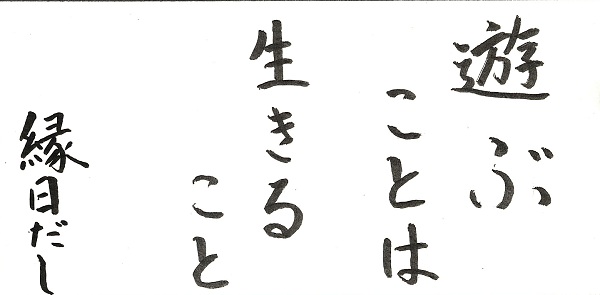 遊ぶ
ことは
生きる
こと
縁日だし